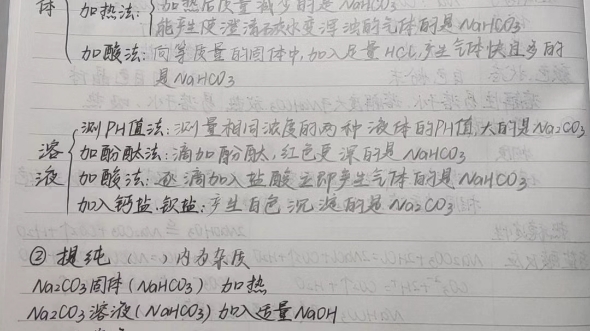 体 加热法: 加热后质量减少的是NaHCO3
能产生使澄清石灰水变浑浊的气体的是NaHCO3
加酸法: 向等质量的固体中,加入足量HCl,产生气体快且多的
是NaHCO3
测PH值法:测量相同浓度的两种液体的PH值,大的是Na2CO3
溶 加酚酞法:滴加酚酞,红色更深的是NaHCO3
液 加酸法:逐滴加入盐酸立即产生气体的是NaHCO3
加入钙盐、钡盐:产生白色沉淀的是Na2CO3
② 提纯 ( )内为杂质
Na2CO3固体(NaHCO3) 加热
Na2CO3溶液(NaHCO3)加入适量NaOH